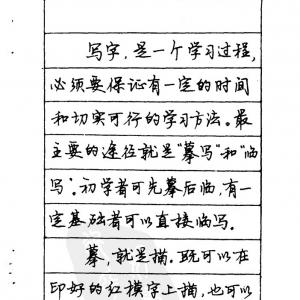 写字,是一个学习过程,
必须要保证有一定的时间
和切实可行的学习方法。最
主要的途径就是“摹写”和“临
写”。初学者可先摹后临,有一
定基础者可以直接临写。
摹,就是描。既可以在
印好的红模字上描,也可以